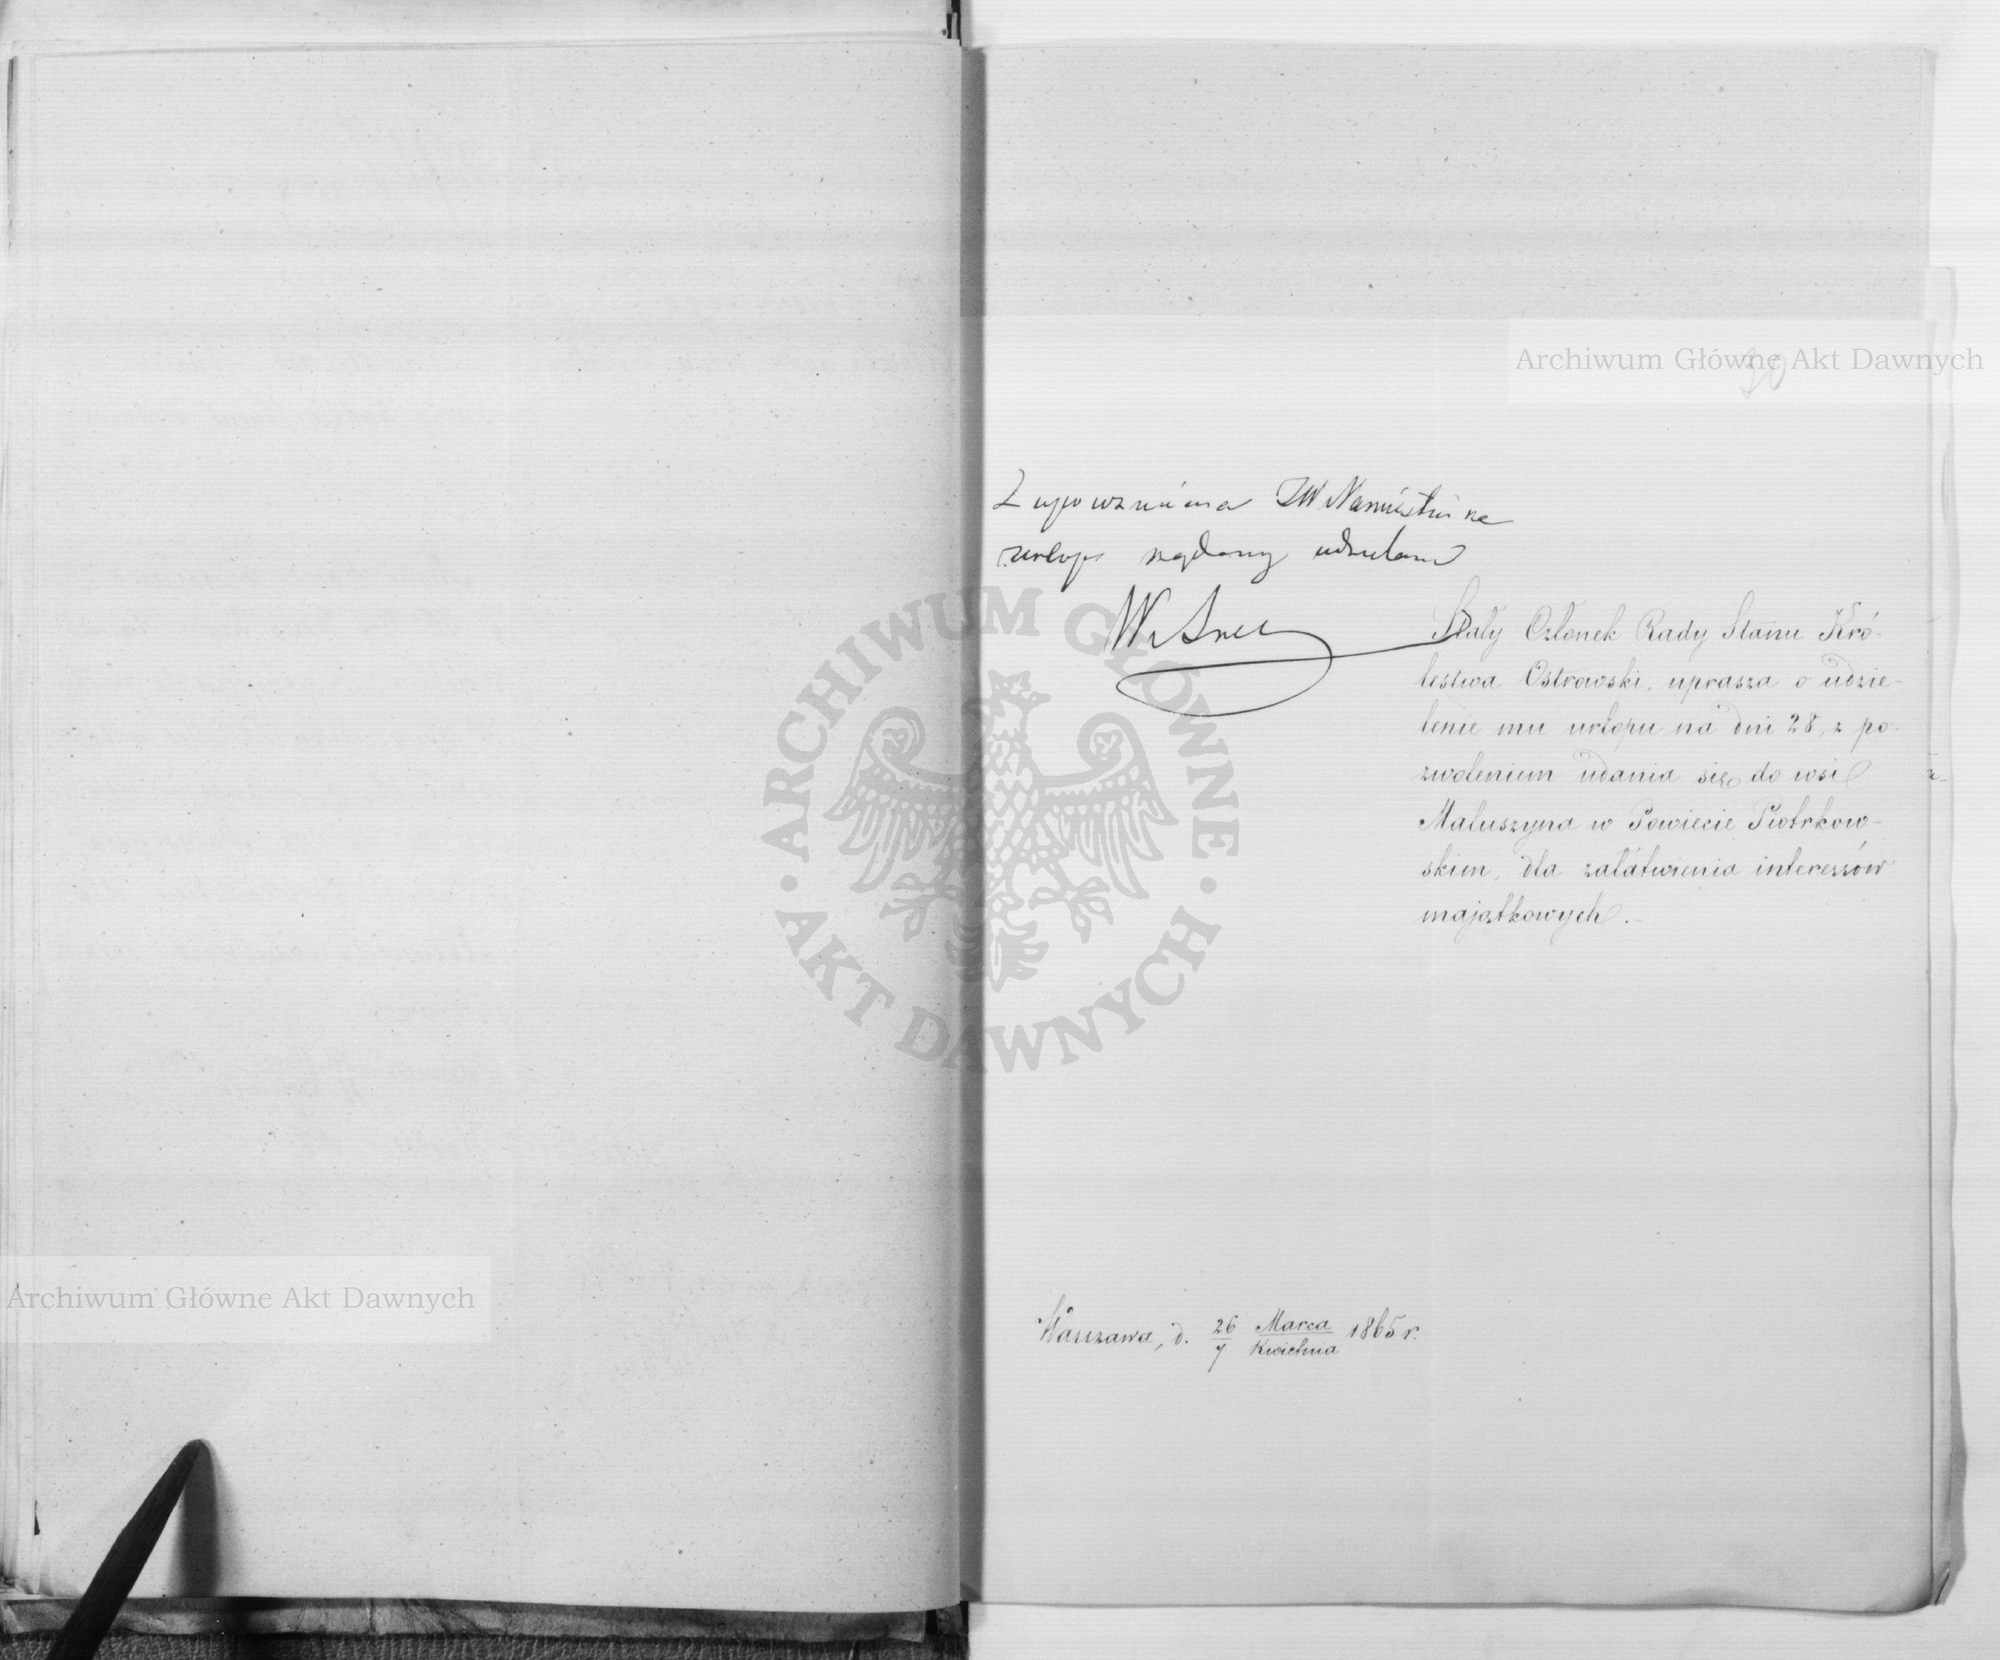 Archiwum Główne Akt Dawnych
30
Z upoważnienia JW Namiestnika
urlop żądany udzielam
Stały Członek Rady Stanu Kró-
lestwa Ostrowski, uprasza o udzie-
lenie mu urlopu na dni 28, z po-
zwoleniem udania się do wsi
Maluszyna w Powiecie Piotrkow-
skim, dla załatwienia interessów
majątkowych.
ARCHIWUM GŁÓWNE
AKT DAWNYCH
Archiwum Główne Akt Dawnych
Warszawa, d. 26/7 Marca/Kwietnia 1865 r.